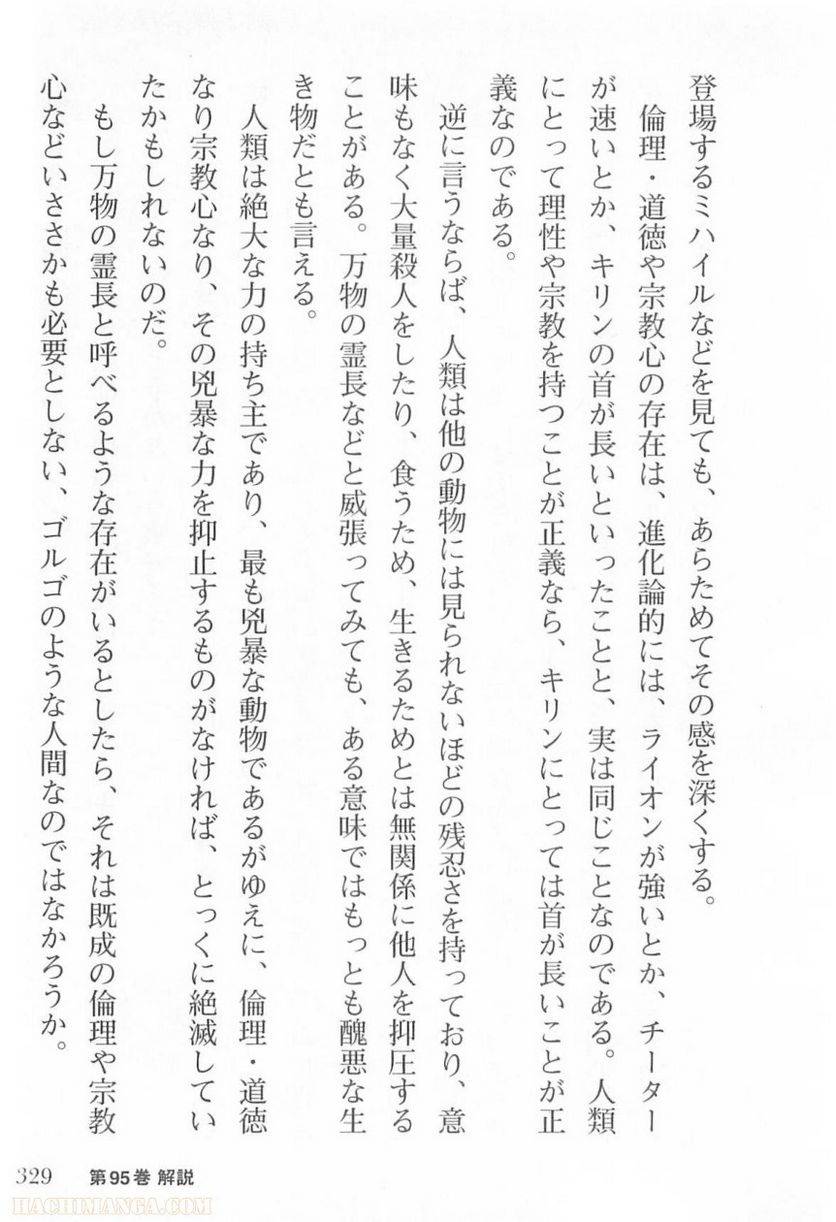 登場するミハイルなどを見ても、あらためてその感を深くする。
倫理・道徳や宗教心の存在は、進化論的には、ライオンが強いとか、チーター
が速いとか、キリンの首が長いといったことと、実は同じことなのである。人類
にとって理性や宗教を持つことが正義なら、キリンにとっては首が長いことが正
義なのである。
逆に言うならば、人類は他の動物には見られないほどの残忍さを持っており、意
味もなく大量殺人をしたり、食うため、生きるためとは無関係に他人を抑圧する
ことがある。万物の霊長などと威張ってみても、ある意味ではもっとも醜悪な生
き物だとも言える。
人類は絶大な力の持ち主であり、最も兇暴な動物であるがゆえに、倫理・道徳
なり宗教心なり、その兇暴な力を抑止するものがなければ、とっくに絶滅してい
たかもしれないのだ。
もし万物の霊長と呼べるような存在がいるとしたら、それは既成の倫理や宗教
心などいささかも必要としない、ゴルゴのような人間なのではなかろうか。
329 第95巻 解説
HACHIMANGA.COM